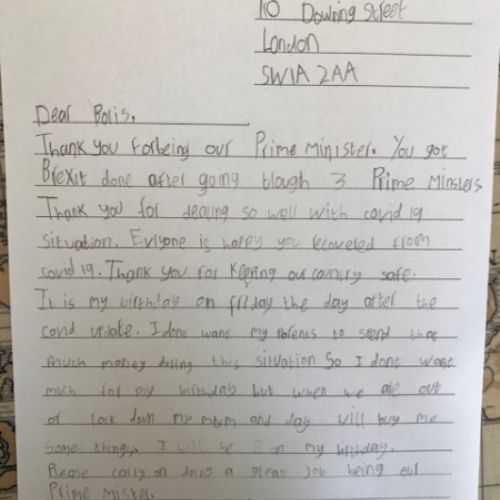 10 Downing Street
London
SW1A 2AA
Dear Boris,
Thank you forbeing our Prime Minister. You got
Brexit done after going though 3 Prime Minsters
Thank you for dealing so well with covid 19
situation. Evryone is happy you recovered from
covid 19. Thank you for keeping our country safe.
It is my birthday on friday the day after the
covid update. I dont want my parents to spend that
much money during this situation So I dont want
much for my birthday but when we are out
of lock down my mum and day will buy me
some things, I will be 8 on my birthday.
Please carry on doing a great job being our
Prime Mister.